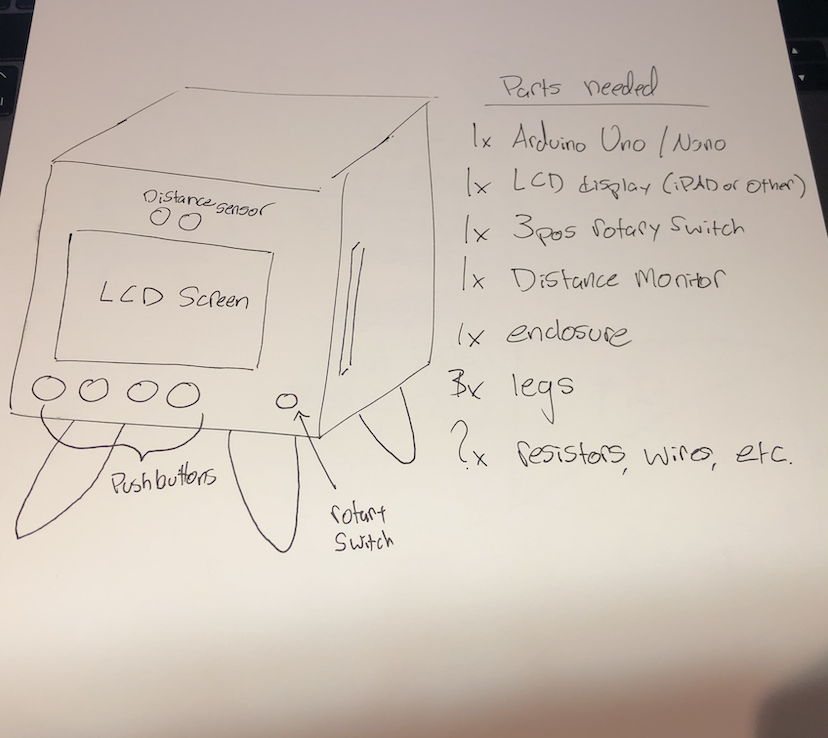 Distance sensor
LCD Screen
Pushbuttons
rotary
switch
Parts needed
1x Arduino Uno / Nano
1x LCD display (iPAD or other)
1x 3pos rotary switch
1x Distance Monitor
1x enclosure
3x legs
?x resistors, wires, etc.